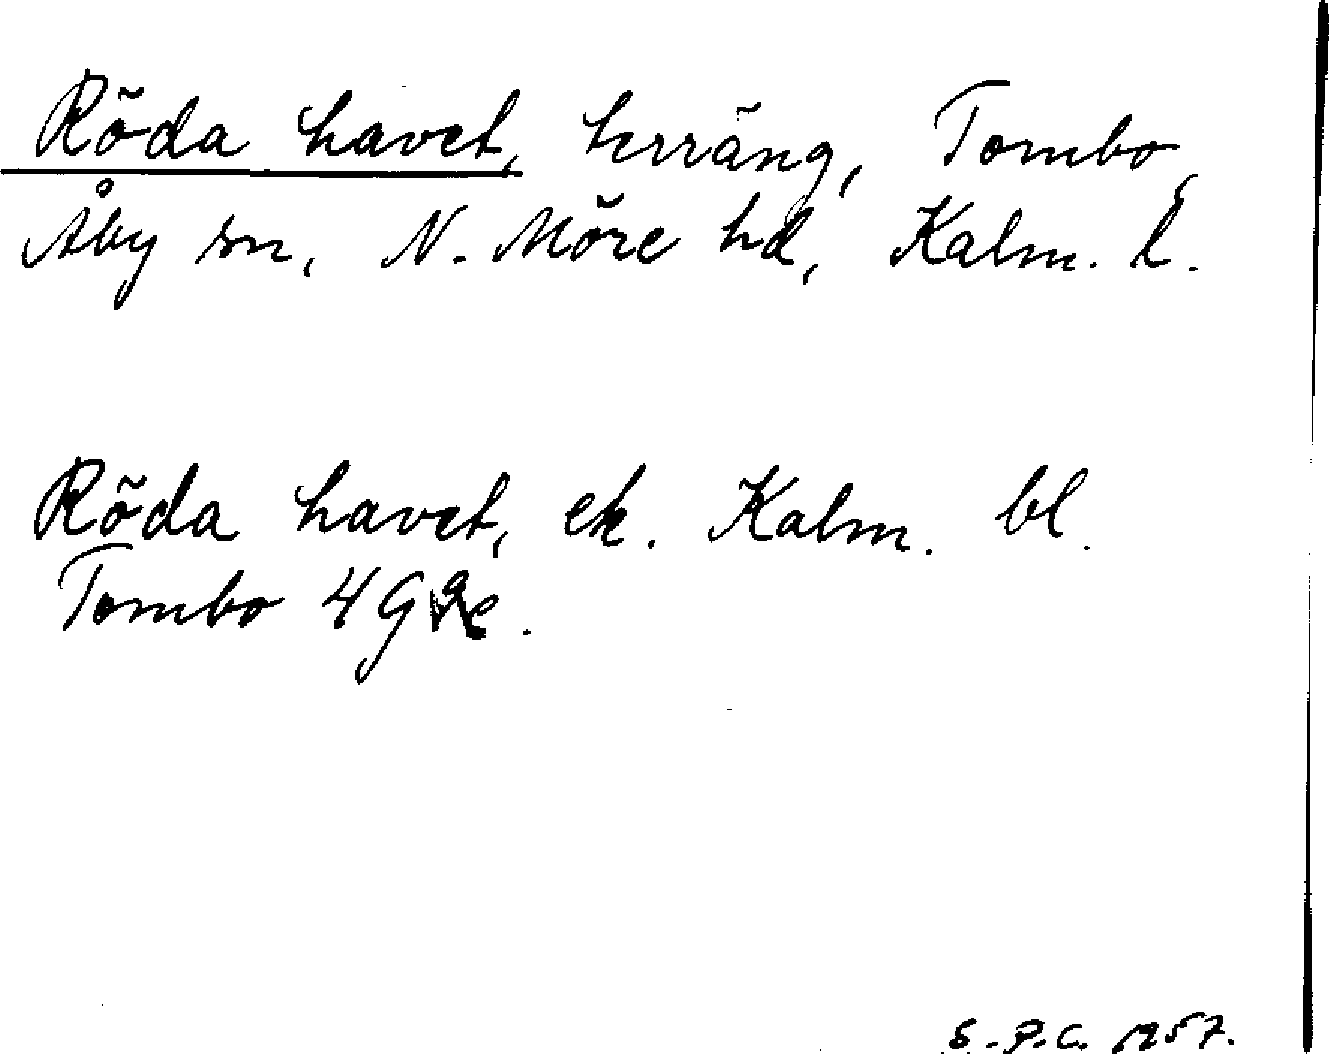 Röda havet, terräng, Tombo,
Åby sn, N. Möre hd, Kalm. l.
Röda havet, ek. Kalm. bl.
Tombo 4 G e.
S.P.C. 1957.